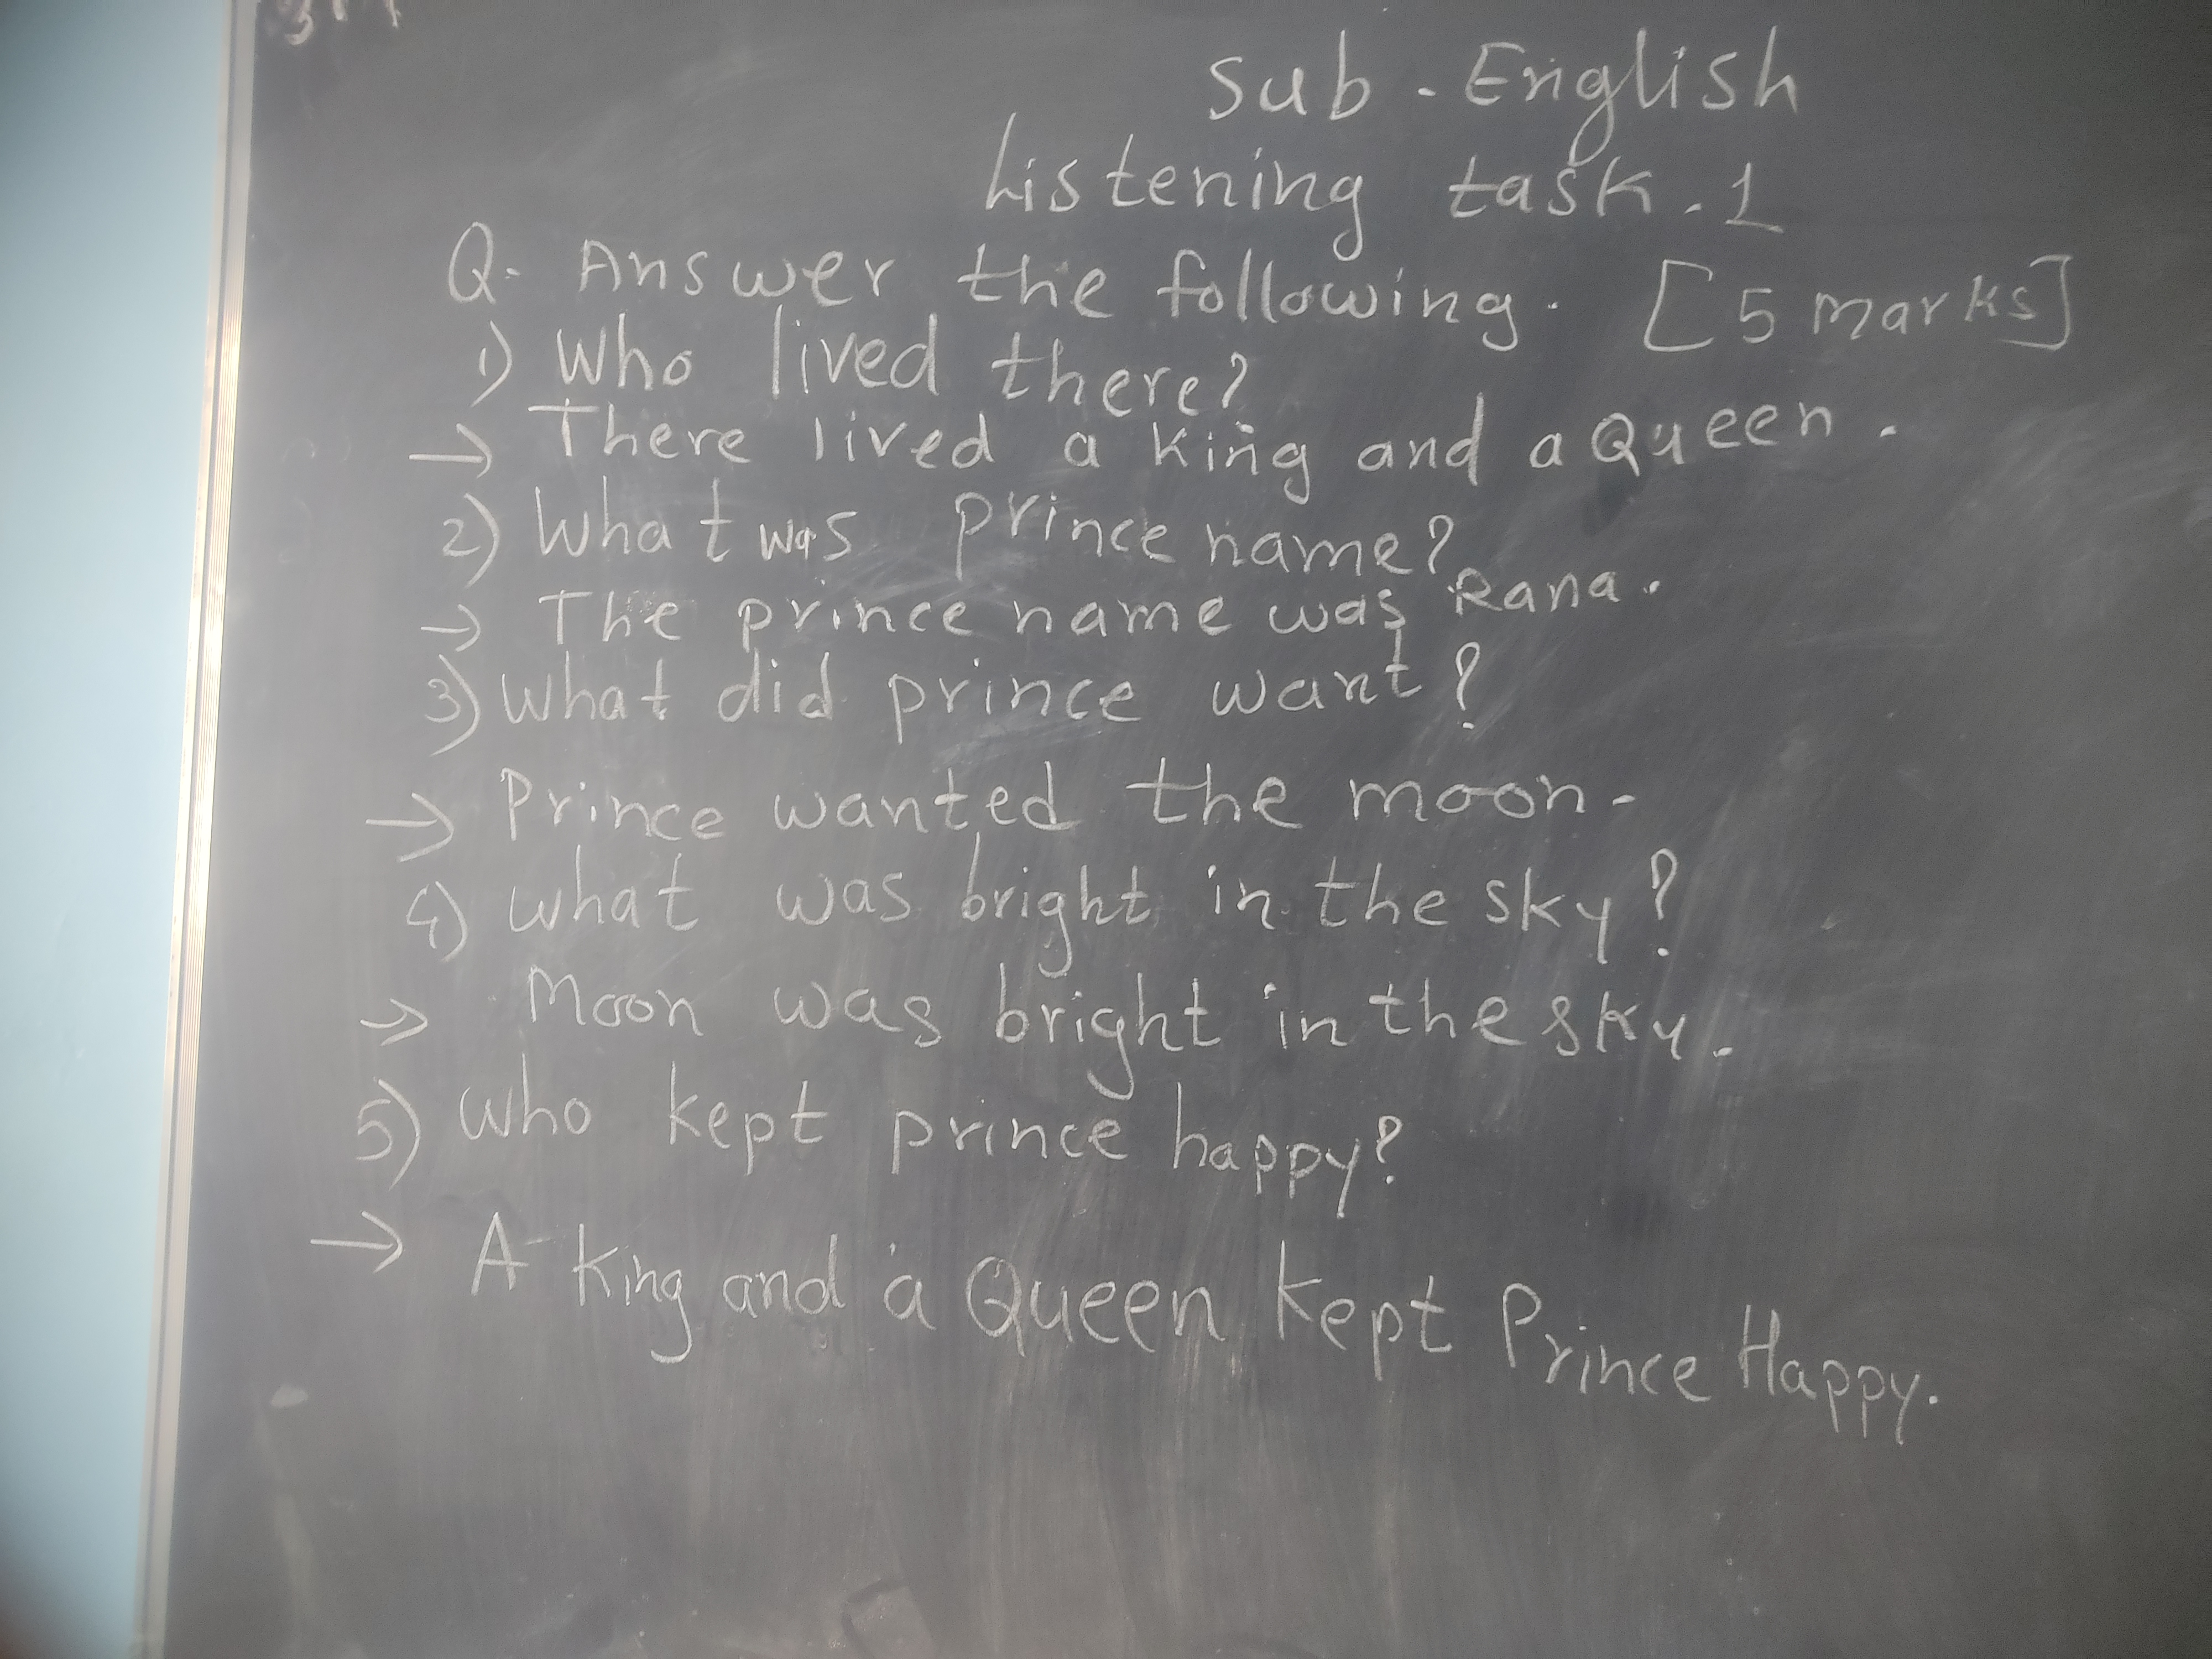 Sub - English
Listening task. 1
Q. Answer the following. [5 marks]
1) Who lived there?
→ There lived a king and a Queen.
2) What was prince name?
→ The prince name was Rana.
3) What did prince want?
→ Prince wanted the moon.
4) What was bright in the sky?
→ Moon was bright in the sky.
5) Who kept prince happy?
→ A King and a Queen kept Prince Happy.